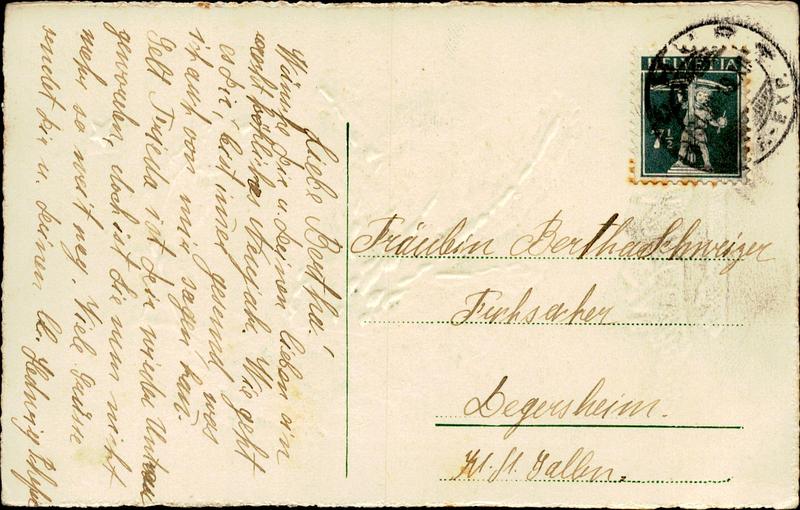 Liebe Bertha!
Wünsche Dir u. deinen lieben ein
recht fröhliches Neujahr. Wie geht
es dir, bist immer gesund, was
ich auch von mir sagen kan.
Gelt Frieda ist dir wieder
geworden, doch ist sie nun nicht
mehr so weit weg. Viele Grüsse
sendet dir u. deinen Lb. Hedwig
HELVETIA
7½
EXP.
Fräulein Bertha Schweizer
Fuchsacker
Degersheim.
Kt. St. Gallen.